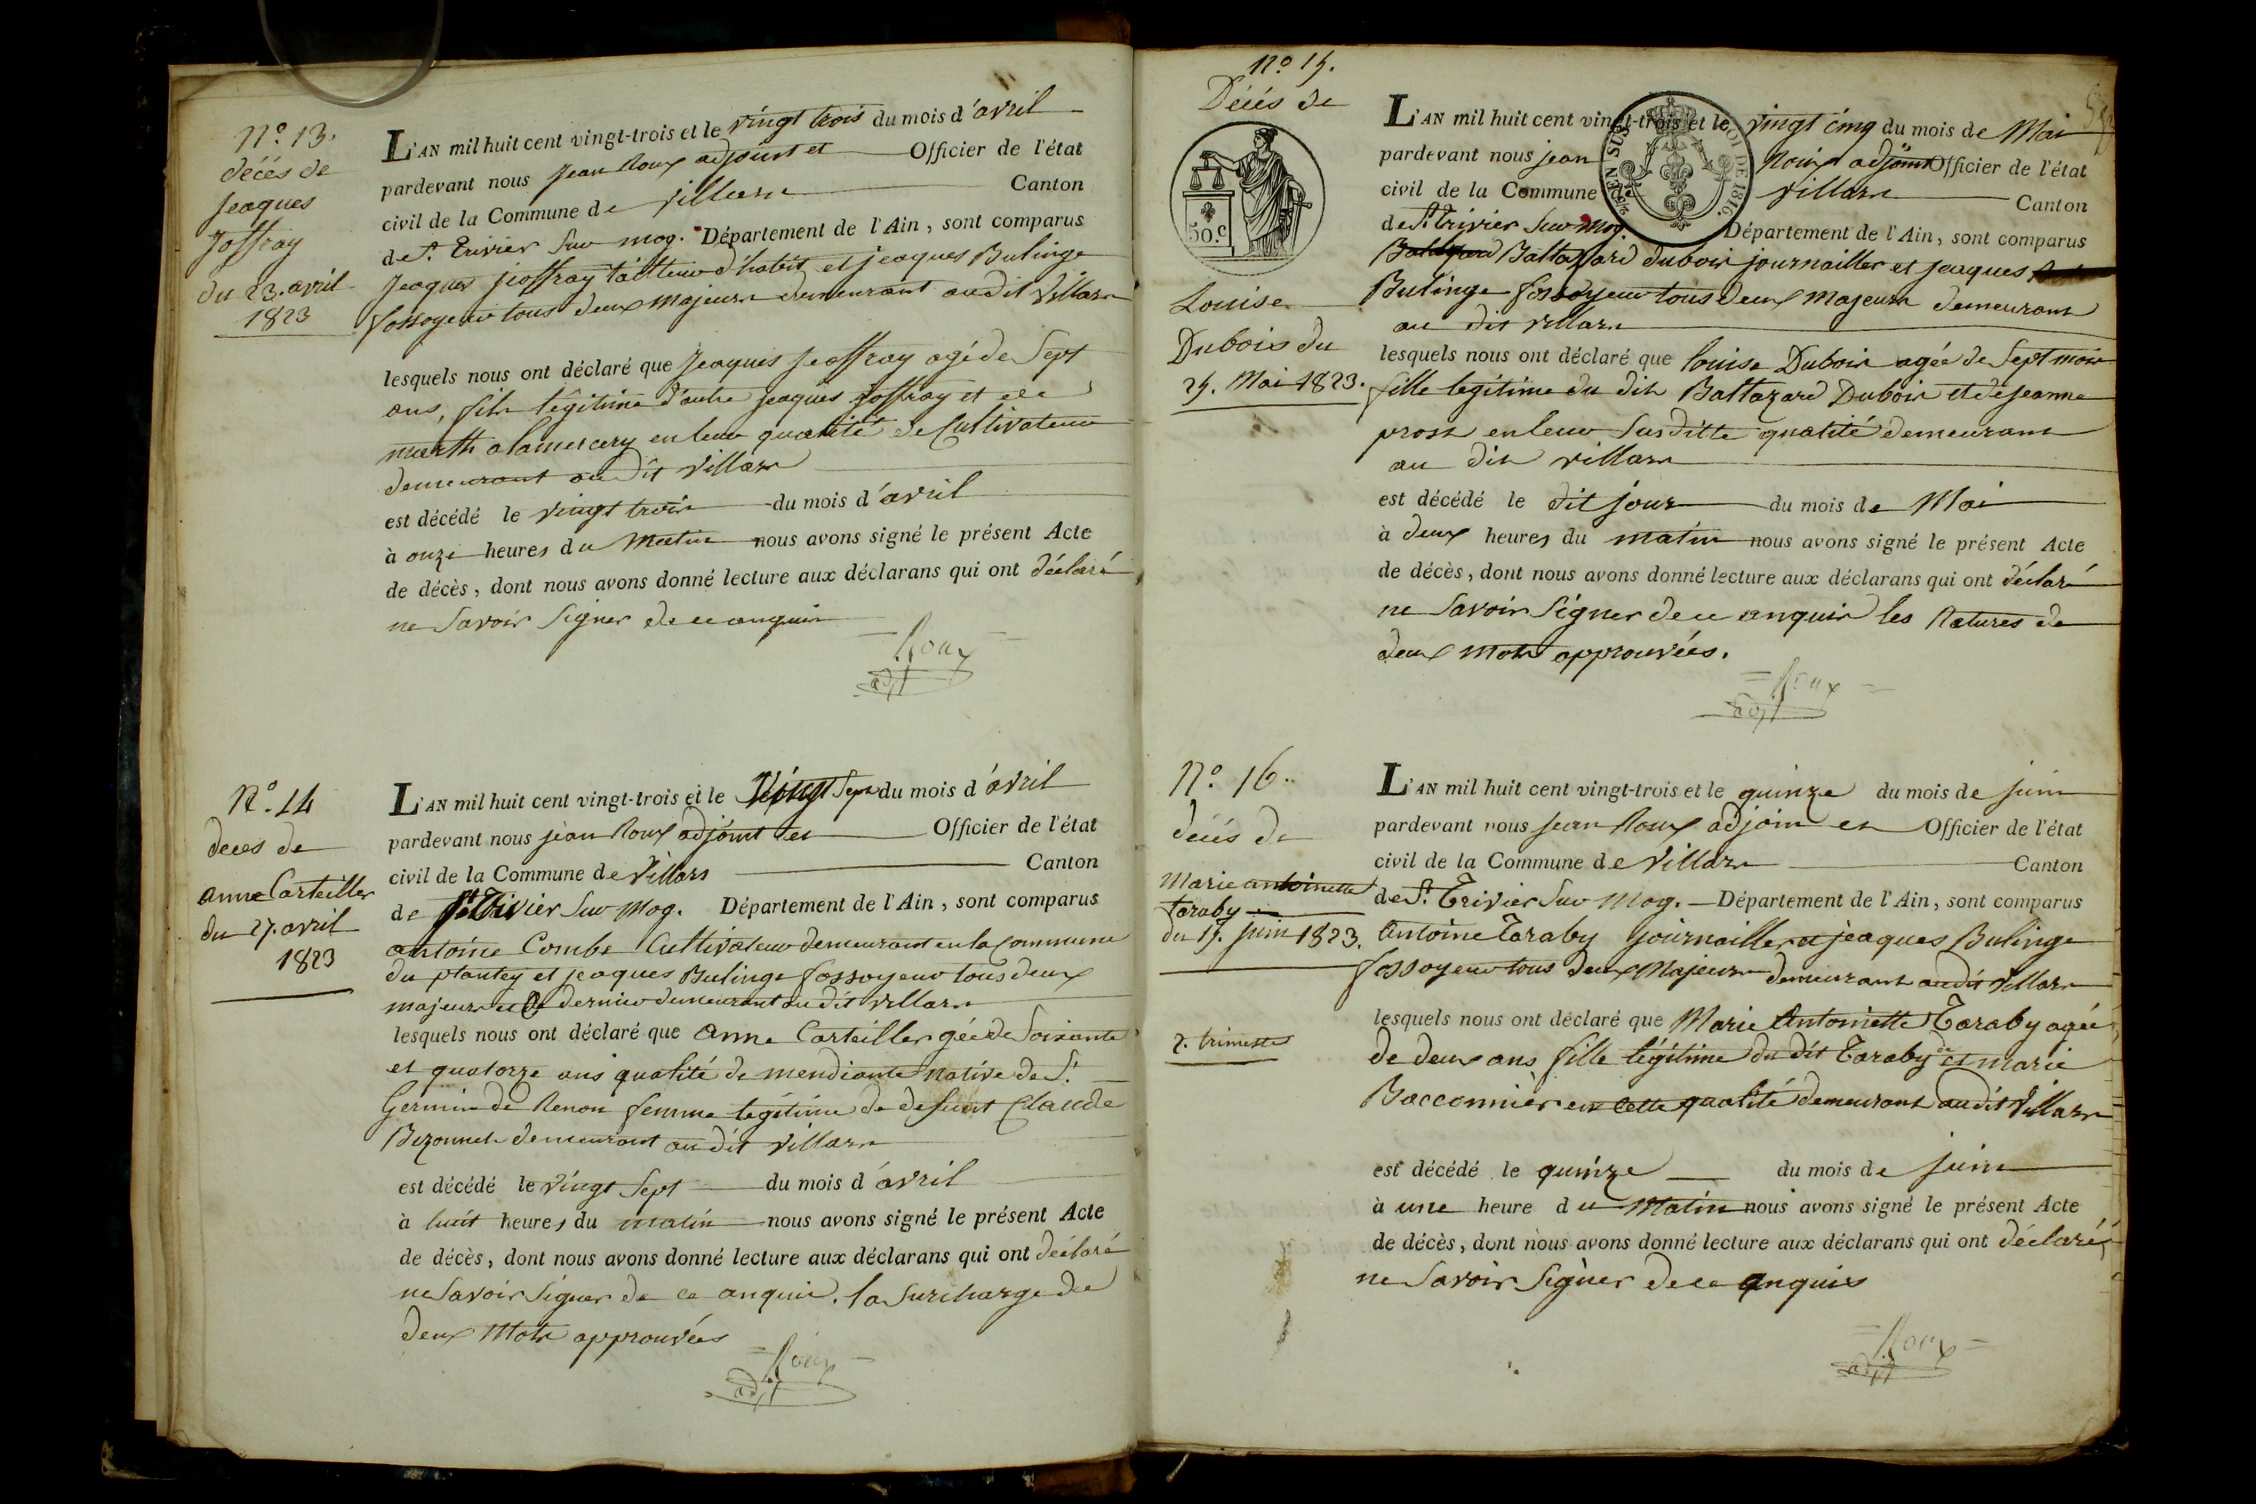 N.o 13.
décés de
jeaques
Joffray
du 23. avril
1823
L'AN mil huit cent vingt-trois et le vingt trois du mois d'avril
pardevant nous jean Roux adjoint et Officier de l'état
civil de la Commune de villars Canton
de St. Trivier Sur mog. Département de l'Ain, sont comparus
jeaques jeoffray tailleur d'habit et jeaques Bulinge
fossoyeur tous deux majeurs demeurant au dit villars
lesquels nous ont déclaré que jeaques jeoffray agé de Sept
ans, fils légitime d'autre jeaques joffray et de
marth alamercery en leur qualité de Cultivateur
demeurant au Dit villars
est décédé le vingt trois du mois d'avril
à onze heures du matin nous avons signé le présent Acte
de décès, dont nous avons donné lecture aux déclarans qui ont déclaré
ne Savoir Signer de ce anquis
Roux
adjt
N.o 14
deces de
anne Carteiller
du 27. avril
1823
L'AN mil huit cent vingt-trois et le vingt Sept du mois d'avril
pardevant nous jean Roux adjoint et Officier de l'état
civil de la Commune de villars Canton
de St Trivier Sur Mog. Département de l'Ain, sont comparus
antoine Combe Cultivateur demeurant en la Commune
du plantey et jeaques Bulinge fossoyeur tous deux
majeurs dernier demeurant au dit villars
lesquels nous ont déclaré que anne Carteiller gée de Soixante
et quatorze ans qualité de mendiante native de St.
Germin de Renon femme legitime de defunt Claude
Bezonnet demeurant au dit villars
est décédé le vingt Sept du mois d'avril
à huit heures du matin nous avons signé le présent Acte
de décès, dont nous avons donné lecture aux déclarans qui ont déclaré
ne Savoir Signer de ce anquis. la Surcharge de
deux Mots approuvées
Roux
adjt
N.o 15.
Décés de
50.c
Louise
Dubois du
25. Mai 1823.
L'AN mil huit cent vingt-trois et le vingt cinq du mois de Mai
pardevant nous jean Roux adjoint Officier de l'état
civil de la Commune villars Canton
de St. Trivier Sur Mog. Département de l'Ain, sont comparus
Baltazard Dubois journailler et jeaques
Bulinge fossoyeur tous deux majeurs demeurant
au dit villars
lesquels nous ont déclaré que louise Dubois agée de Sept mois
fille legitime du dit Baltazard Dubois et de jeanne
prost en leur Susditte qualité demeurant
au dit villars
est décédé le dit jour du mois de Mai
à deux heures du matin nous avons signé le présent Acte
de décès, dont nous avons donné lecture aux déclarans qui ont déclaré
ne Savoir Signer de ce anquis les Ratures de
deux mots approuvées.
Roux
adjt
EN SUS
LOI DE 1816.
N.o 16.
décés de
Marie antoinette
Taraby
du 15. juin 1823.
2. trimestre
L'AN mil huit cent vingt-trois et le quinze du mois de juin
pardevant nous jean Roux adjoin et Officier de l'état
civil de la Commune de villars Canton
de St. Trivier Sur Mog. Département de l'Ain, sont comparus
Antoine Taraby journailler et jeaques Bulinge
fossoyeur tous deux Majeurs demeurant au dit villars
lesquels nous ont déclaré que Marie Antoinette Taraby agée
de deux ans fille légitime du dit Taraby et de marie
Bacconnier en Cette qualité demeurant au dit villars
est décédé le quinze du mois de juin
à une heure du Matin nous avons signé le présent Acte
de décès, dont nous avons donné lecture aux déclarans qui ont déclaré
ne Savoir Signer de ce anquis
Roux
adjt